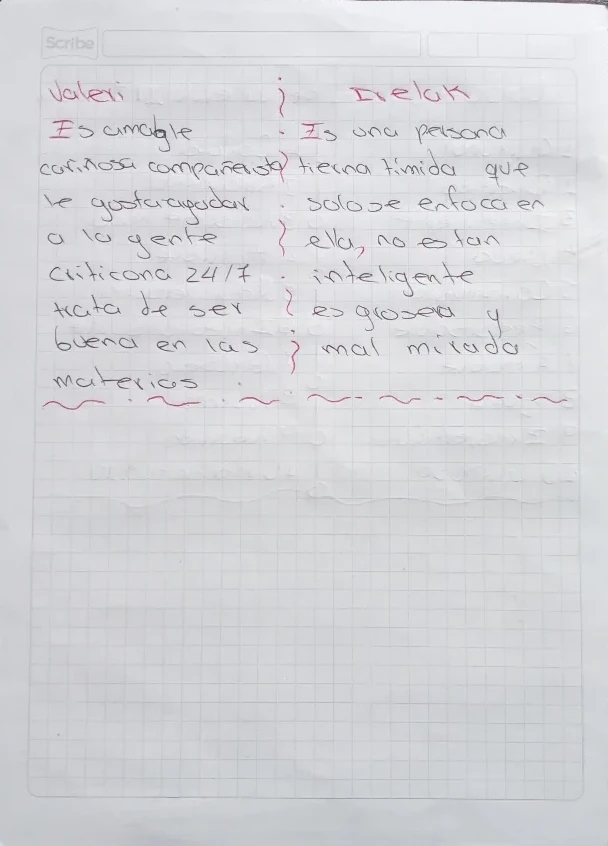 Scribe
Valeri
Es amable
cariñosa compañerista
le gusta ayudar
a la gente
criticona 24/7
trata de ser
buena en las
materias
Irelak
Es una persona
tierna timida que
solo se enfoca en
ella, no es tan
inteligente
es grosera y
mal mirada